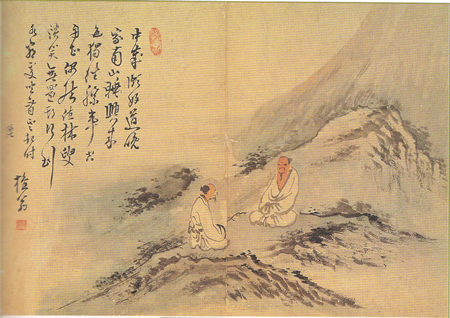 中歲頗好道晚
家南山陲興來
每獨往勝事空
自知偶然值林叟
談笑無還期行到
水窮處坐看雲起時
檀翁